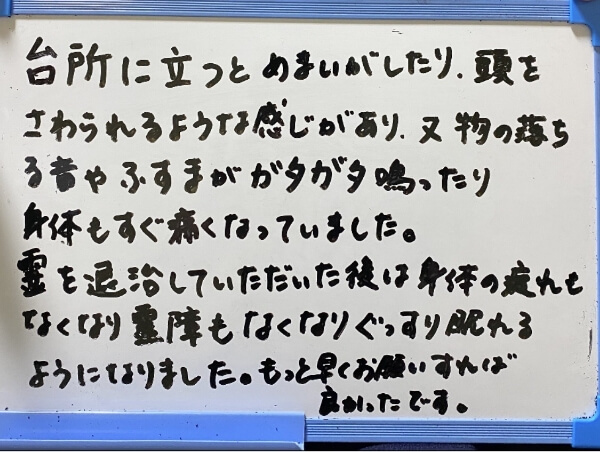 台所に立つとめまいがしたり、頭を
さわられるような感じがあり、又物の落ち
る音やふすまががタガタ鳴ったり
身体もすぐ痛くなっていました。
霊を退治していただいた後は身体の疲れも
なくなり霊障もなくなりぐっすり眠れる
ようになりました。もっと早くお願いすれば
良かったです。